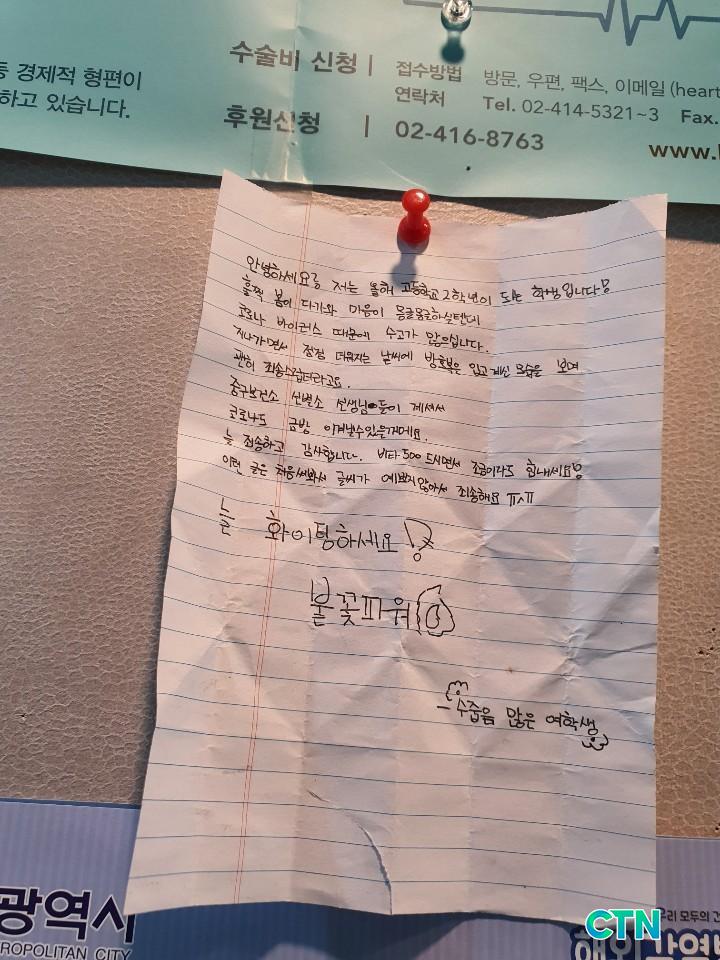 등 경제적 형편이
하고 있습니다.
수술비 신청 | 접수방법 방문, 우편, 팩스, 이메일 (heart
연락처 Tel. 02-414-5321~3 Fax.
후원신청 | 02-416-8763
www.
안녕하세요 저는 올해 고등학교 2학년이 되는 학생입니다!
훌쩍 봄이 다가와 마음이 뭉클뭉클하실텐데
코로나 바이러스 때문에 수고가 많으십니다.
지나가면서 점점 더워지는 날씨에 방호복을 입고계신 모습을 보며
괜히 죄송스럽더라고요.
중구보건소 선별소 선생님들이 계셔서
코로나도 금방 이겨낼수있을거에요.
늘 죄송하고 감사합니다. 비타500 드시면서 조금이나마 힘내세요!
이런 글은 처음써봐서 글씨가 예쁘지않아서 죄송해요 ㅠㅅㅠ
늘 화이팅하세요!
불꽃파워
- 수줍음 많은 여학생
광역시
ROPOLITAN CITY
우리 모두의 건
해외감염병
CTN